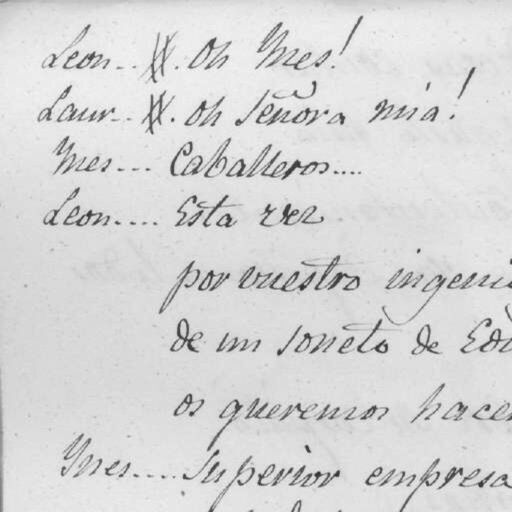 Leon.. Oh Ynes!
Laur.. Oh señora mia!
Ynes... Caballeros....
Leon.... Esta vez
por vuestro
de un soneto de
os queremos
Ynes.... Superior empresa